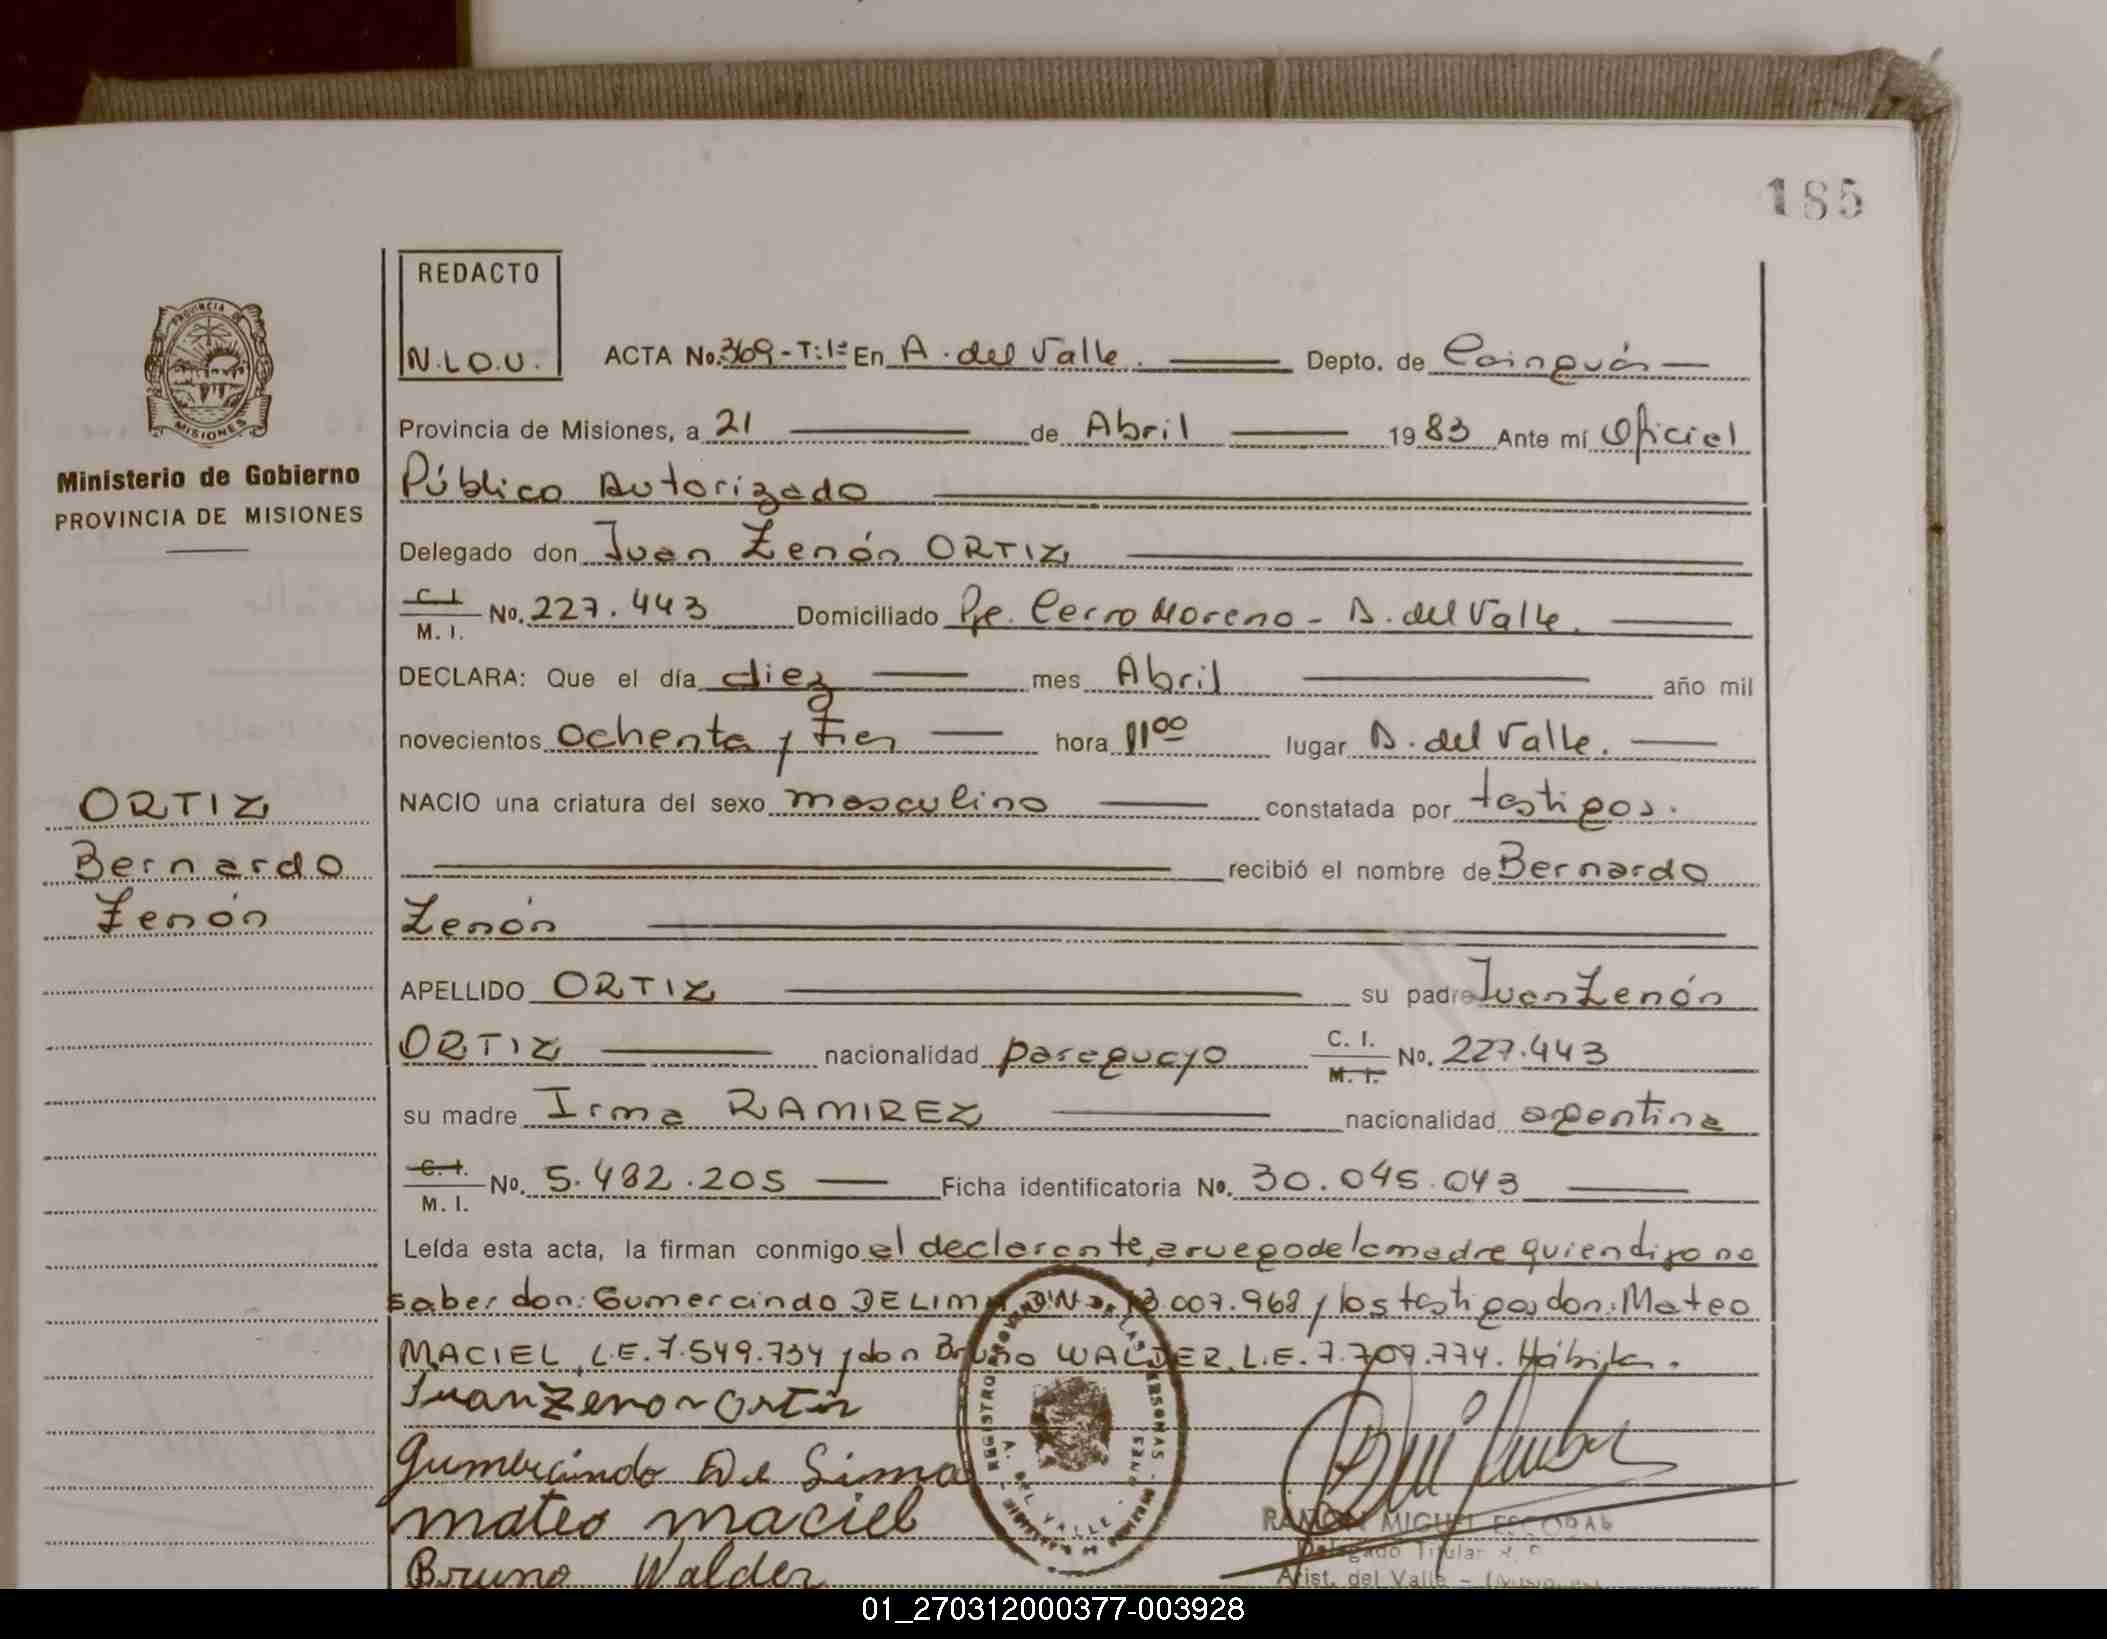 185
REDACTO
N.L.O.U.
ACTA No. 369-T:1º En A. del Valle. Depto. de Cainguás
Provincia de Misiones, a 21 de Abril 1983 Ante mí Oficial
Público Autorizado
Delegado don Juan Zenón ORTIZ
C. I. M. I. No. 227.443 Domiciliado Pje. Cerro Moreno - A. del Valle.
DECLARA: Que el día diez mes Abril año mil
novecientos ochenta y tres hora 11⁰⁰ lugar A. del Valle.
NACIO una criatura del sexo masculino constatada por testigos.
recibió el nombre de Bernardo
Zenón
APELLIDO ORTIZ su padre Juan Zenón
ORTIZ nacionalidad paraguayo C. I. M. I. No. 227.443
su madre Irma RAMIREZ nacionalidad argentina
C. I. M. I. No. 5.482.205 Ficha identificatoria No. 30.045.043
Leída esta acta, la firman conmigo el declarante, a ruego de la madre quien dijo no
saber don: Gumercindo DE LIMA D.N.I. 13.007.968 y los testigos don: Mateo
MACIEL, L.E. 7.549.734 y don Bruno WALDER, L.E. 7.709.774. Hábiles.
Juan Zenon Ortiz
Gumercindo De Lima
mateo maciel
Bruno Walder
PROVINCIA DE
MISIONES
Ministerio de Gobierno
PROVINCIA DE MISIONES
ORTIZ
Bernardo
Zenón
A. DEL VALLE
RAMON MIGUEL ESCOBAR
Delegado Titular
Arist. del Valle -
01_270312000377-003928